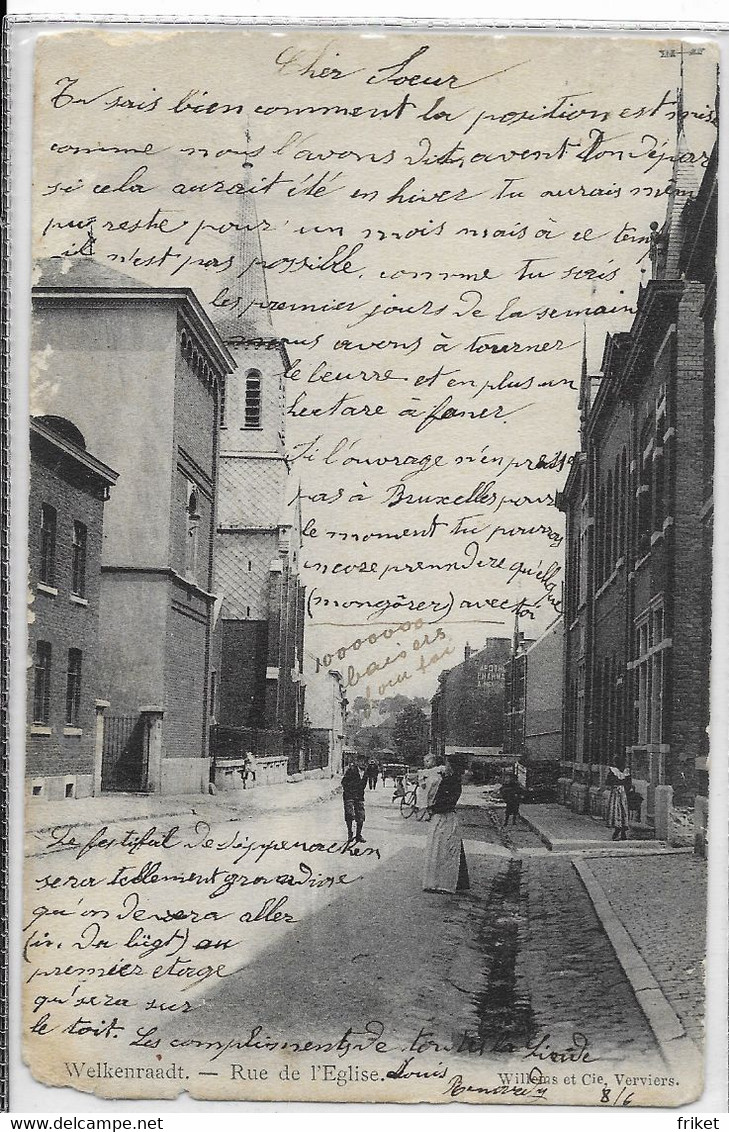 Cher Soeur
Tu sais bien comment la position est mise
comme nous l'avons dit, avent ton départ
si cela aurait été en hiver tu aurais mem
pu reste pour un mois mais à ce temp
il n'est pas possible. comme tu sais
les premier jours de la semain
nous avons à tourner
le beurre et en plus un
hectare à faner.
Si l'ouvrage n'en presse
pas à Bruxelles pour
le moment tu pourras
encore prenndre qu'elque
(mongôrer) avec toi
10000000
baisers
pour toi
APOTHE
Le festival de Sippenaeken
sera tellement grandine
qu'on devera aller
(in. Du lügt) au
premier etage
qu'sera sur
le toit. Les compliments de toute la
Louis
Welkenraadt. — Rue de l'Eglise.
Willems et Cie, Verviers.
8/6
friket